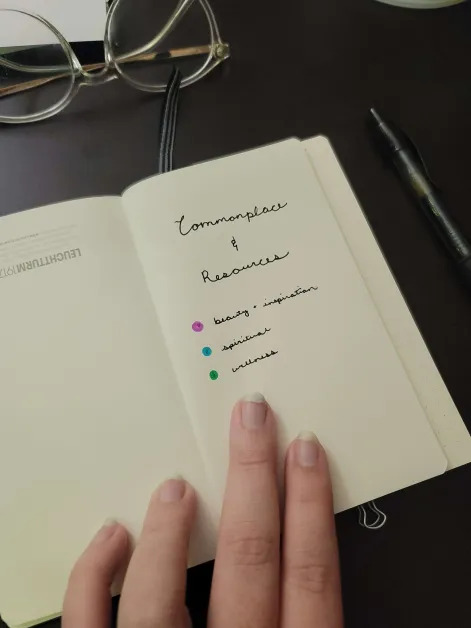 LEUCHTTURM1917
Commonplace
&
Resources
beauty + inspiration
spiritual
wellness